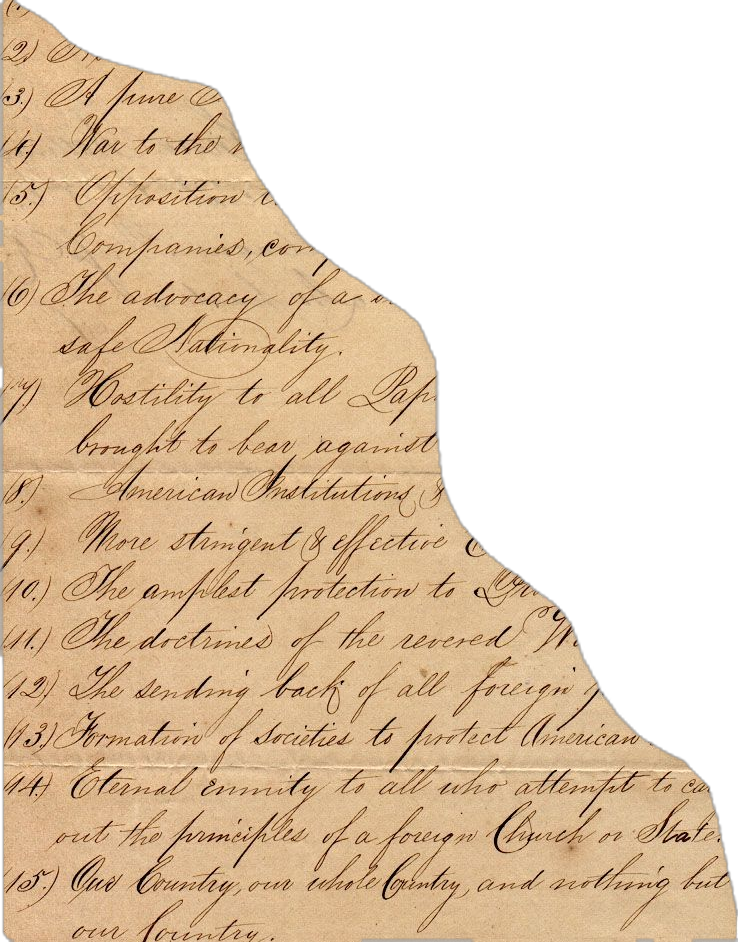 (2)
(3.) A pure
(4.) War to the
(5.) Opposition
Companies,
(6) The advocacy of a
safe Nationality.
(7) Hostility to all
brought to bear against
(8.) American Institutions &
(9.) More stringent & effective
(10.) The amplest protection to
(11.) The doctrines of the revered
(12) The sending back of all foreign
(13.) Formation of societies to protect American
(14.) Eternal enmity to all who attempt to
out the principles of a foreign Church or State.
(15.) Our Country, our whole Country, and nothing but
our Country.